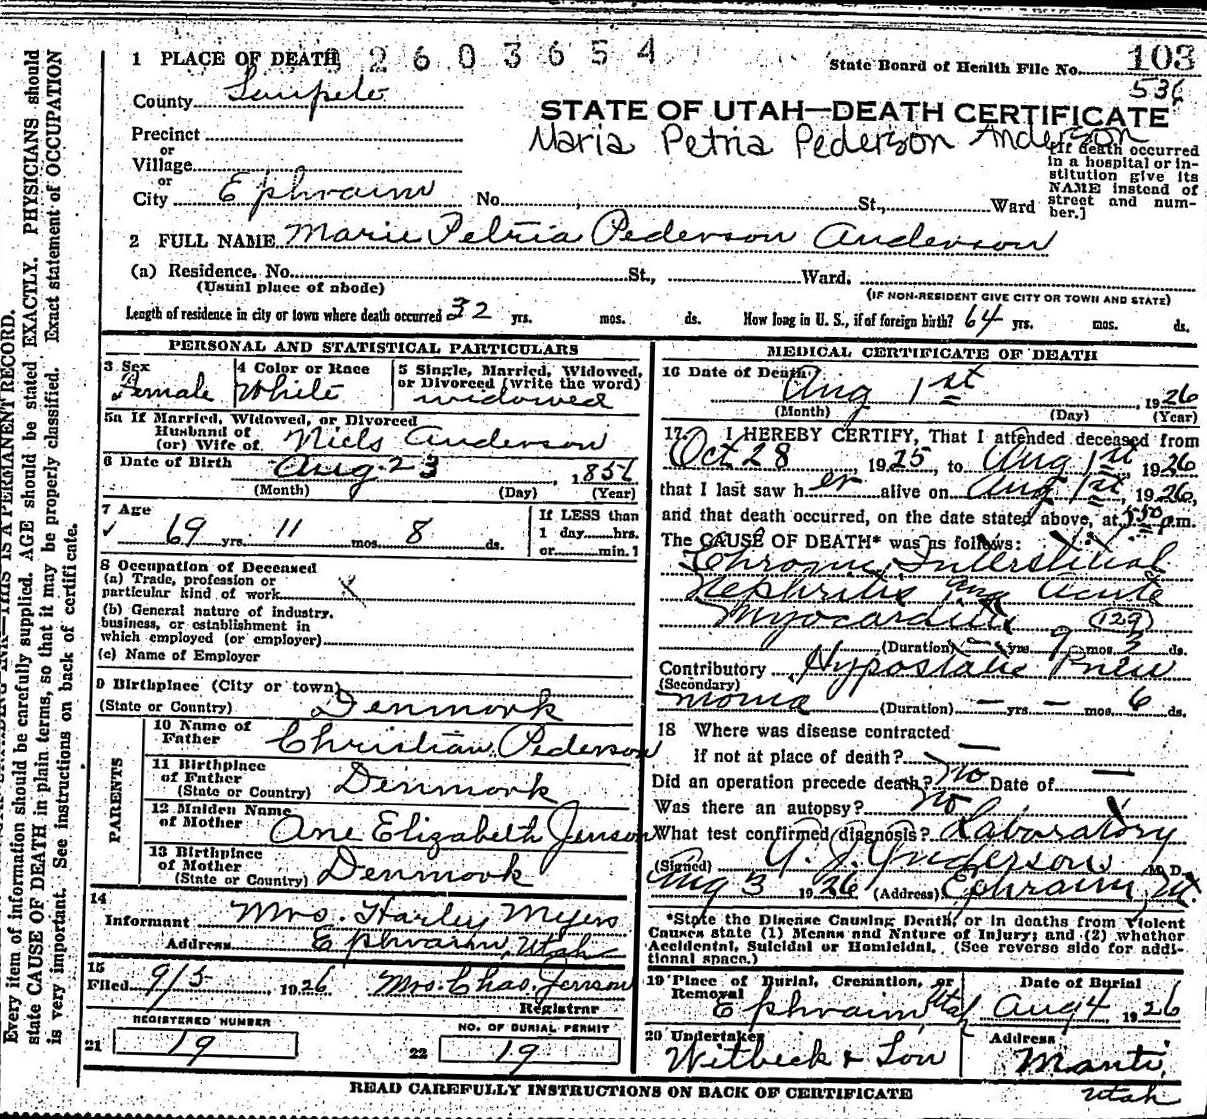 Every item of information should be carefully supplied. AGE should be stated EXACTLY. PHYSICIANS should
state CAUSE OF DEATH in plain terms, so that it may be properly classified. Exact statement of OCCUPATION
is very important. See instructions on back of certificate.
THIS IS A PERMANENT RECORD.
1 PLACE OF DEATH 2603654
State Board of Health File No. 103
536
County Sanpete
STATE OF UTAH—DEATH CERTIFICATE
Maria Petria Pederson Anderson
Precinct
or
Village
or
City Ephraim No. St., Ward
[If death occurred
in a hospital or in-
stitution give its
NAME instead of
street and num-
ber.]
2 FULL NAME Marie Petria Pederson Anderson
(a) Residence. No. St., Ward.
(Usual place of abode)
(IF NON-RESIDENT GIVE CITY OR TOWN AND STATE)
Length of residence in city or town where death occurred 32 yrs. mos. ds. How long in U. S., if of foreign birth? 64 yrs. mos. ds.
PERSONAL AND STATISTICAL PARTICULARS
3 Sex
Female
4 Color or Race
White
5 Single, Married, Widowed,
or Divorced (write the word)
widowed
5a If Married, Widowed, or Divorced
Husband of
(or) Wife of Niels Anderson
6 Date of Birth Aug. 23, 1856
(Month) (Day) (Year)
7 Age
69 yrs. 11 mos. 8 ds.
If LESS than
1 day hrs.
or min.]
8 Occupation of Deceased
(a) Trade, profession or
particular kind of work x
(b) General nature of industry,
business, or establishment in
which employed (or employer)
(c) Name of Employer
9 Birthplace (City or town)
(State or Country) Denmark
PARENTS
10 Name of
Father Christian Pederson
11 Birthplace
of Father
(State or Country) Denmark
12 Maiden Name
of Mother Ane Elizabeth Jenson
13 Birthplace
of Mother
(State or Country) Denmark
14
Informant Mrs. Harley Myers
Address Ephraim, Utah
15
Filed 9/5, 1926 Mrs. Chas. Jenson
Registrar
REGISTERED NUMBER
21 19
NO. OF BURIAL PERMIT
22 19
MEDICAL CERTIFICATE OF DEATH
16 Date of Death
Aug 1st, 1926
(Month) (Day) (Year)
17. I HEREBY CERTIFY, That I attended deceased from
Oct 28, 1925, to Aug 1st 1926
that I last saw her alive on Aug 1st, 1926,
and that death occurred, on the date stated above, at 550 p.m.
The CAUSE OF DEATH* was as follows:
Chronic Interstitial
Nephritis and acute
Myocarditis (129)
(Duration) — yrs. 9 mos. 3 ds.
Contributory Hypostatic Pneu
(Secondary)
monia (Duration) — yrs. — mos. 6 ds.
18 Where was disease contracted
If not at place of death? —
Did an operation precede death? no Date of —
Was there an autopsy? no
What test confirmed diagnosis? Laboratory
(Signed) A. J. Anderson M. D.
Aug 3 1926 (Address) Ephraim, Ut.
*State the Disease Causing Death, or in deaths from Violent
Causes state (1) Means and Nature of Injury; and (2) whether
Accidental, Suicidal or Homicidal. (See reverse side for addi-
tional space.)
19 Place of Burial, Cremation, or
Removal
Ephraim Utah
Date of Burial
Aug 4 1926
20 Undertaker
Witbeck & Son
Address
Manti,
Utah
READ CAREFULLY INSTRUCTIONS ON BACK OF CERTIFICATE